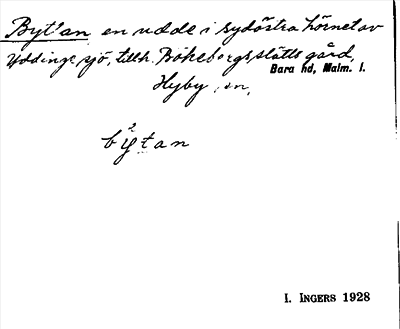 Byt'an en udde i sydöstra hörnet av
Yddinge sjö, tillh. Bökebergsslätts gård,
Bara hd, Malm. l.
Hyby sn,
bytan
I. INGERS 1928